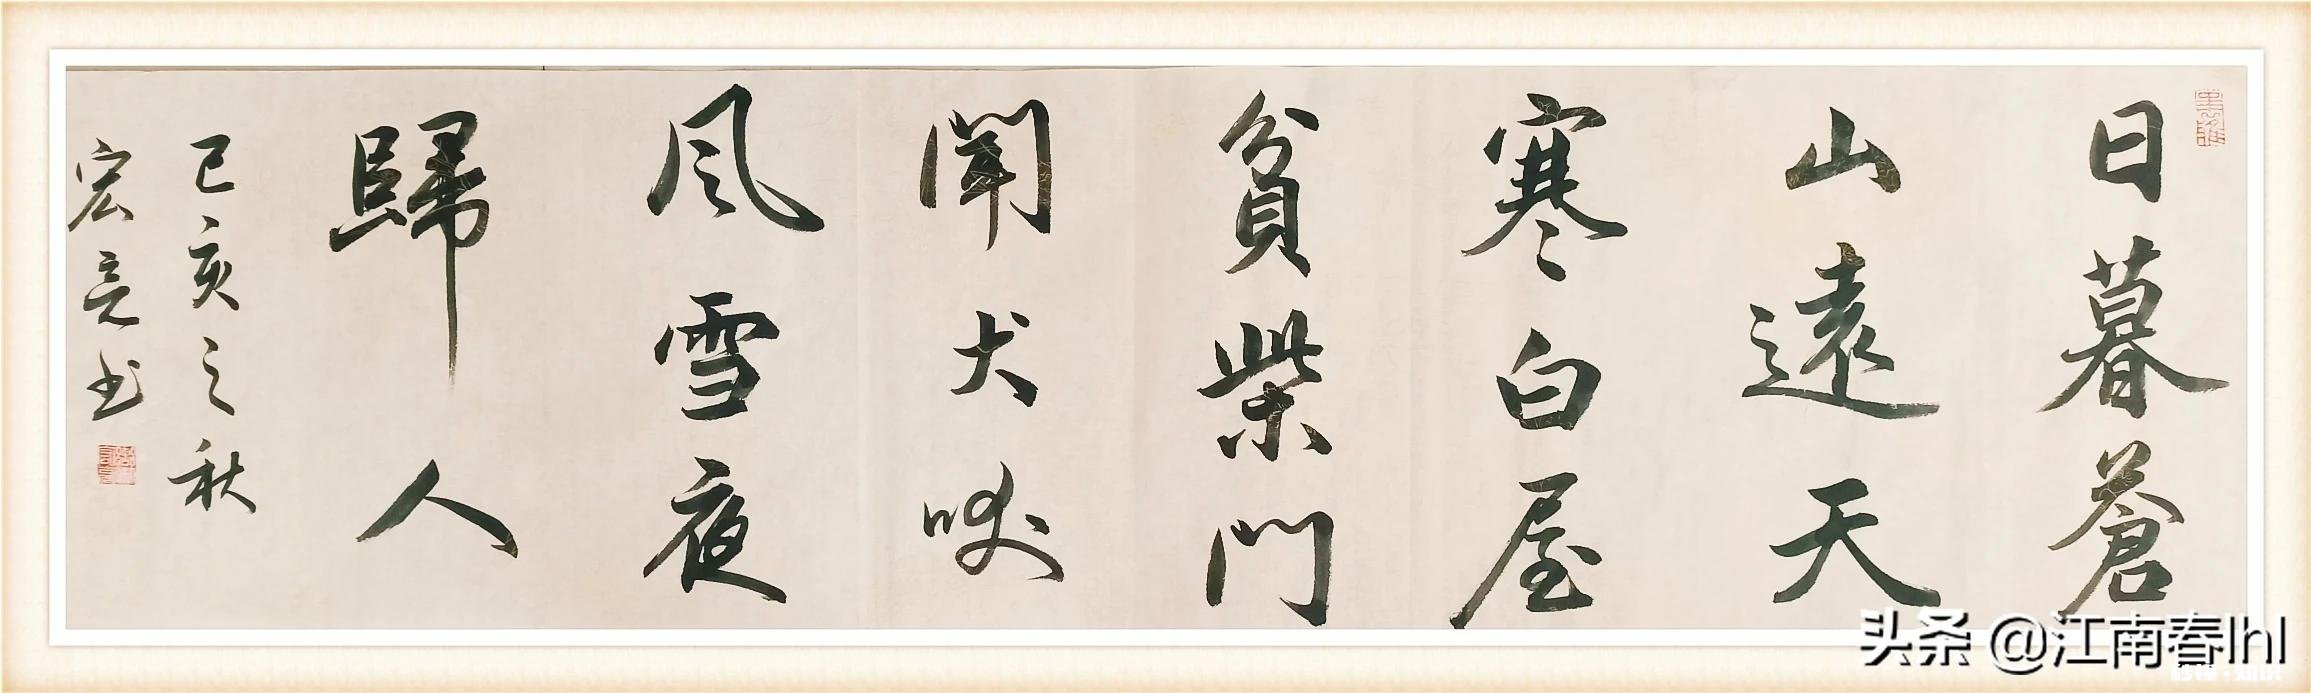 日暮蒼
山遠天
寒白屋
貧柴門
聞犬吠
风雪夜
歸人
己亥之秋
宏亮书
头条 @江南春lhl